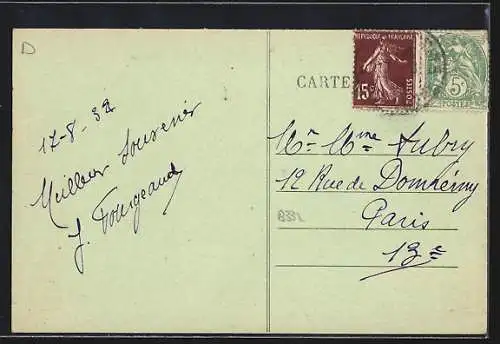 D
17-8-32
Meilleur Souvenir
J. Fougeaud
CARTE
REPUBLIQUE FRANÇAISE
15c
POSTES
5c
POSTES
Mr Mme Aubry
12 Rue de Domrémy
Paris
13e
B332